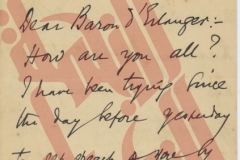 Dear Baron d'Erlanger:-
How are you all?
I have been trying since
the day before yesterday
to
by